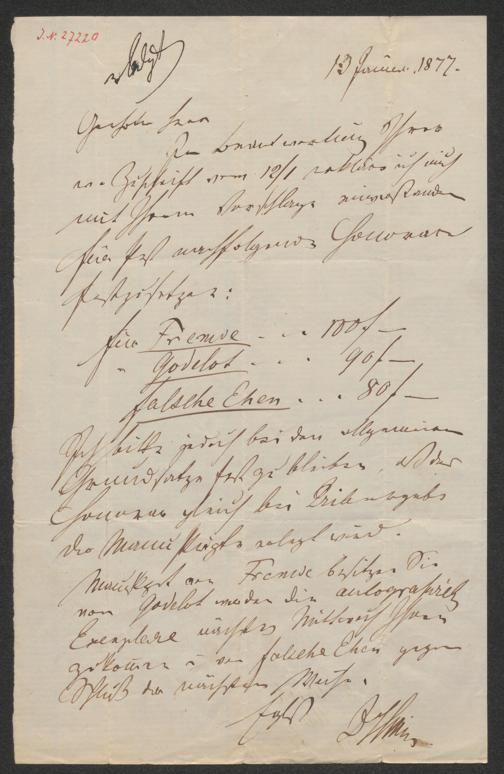 J. N. 27220
erledigt
13 Januar 1877.
Geehrter Herr
In Beantwortung Ihrer
w. Zuschrift vom 12/1 erkläre ich mich
mit Ihrem Vorschlage einverstanden
für nachfolgende Honorare
festzusetzen:
für Fremde - . . 100 f —
" Godelot . . . 90 f —
falsche Ehen . . . 80 f —
Ich bitte jedoch bei dem allgemeinen
Grundsatze fest zu bleiben, daß das
Honorar gleich bei Übergabe
des Manuskripts erlegt wird.
Manuskript von Fremde besitzen Sie
von Godelot werden die autografirten
Exemplare nächsten Mittwoch Ihnen
zukommen u von falsche Ehen gegen
Schluß der nächsten Woche.